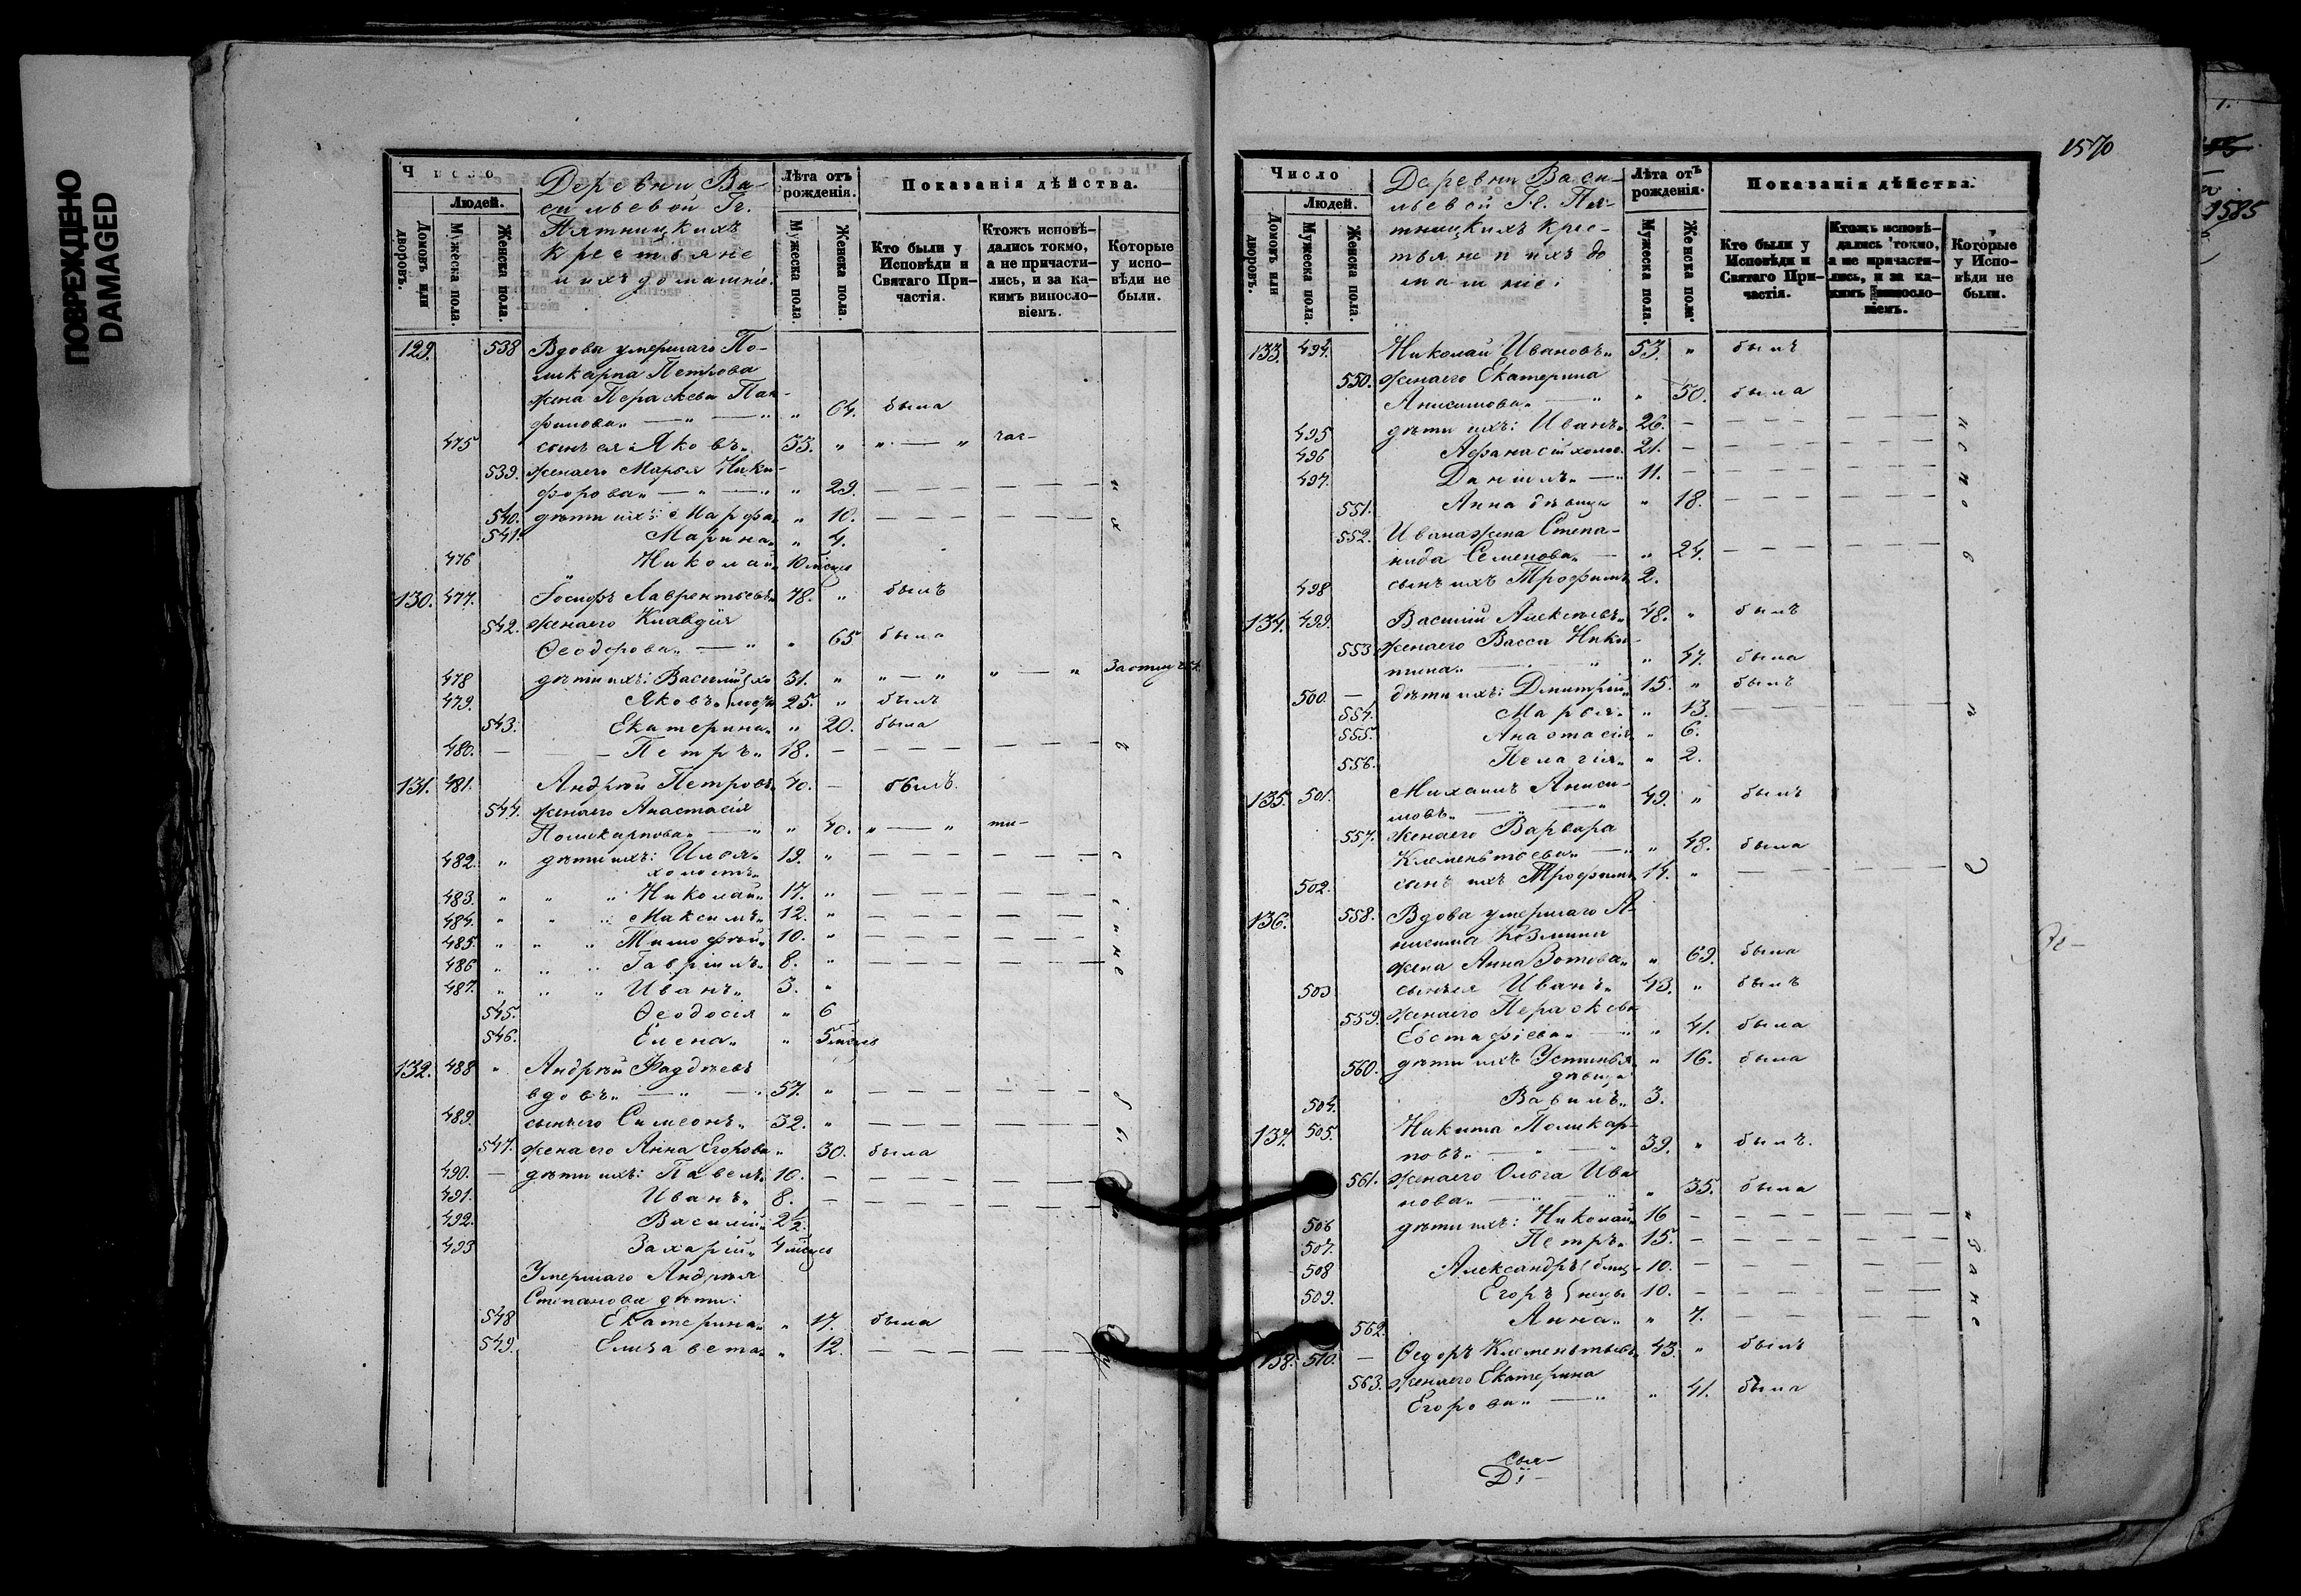 ПОВРЕЖДЕНО
DAMAGED
Число
Людей.
Домовъ или дворовъ.
Мужеска пола.
Женска пола.
Деревни Ва-
сильевой Гг.
Пятницкихъ
крестьяне
и ихъ домашніе.
Лѣта отъ рожденія.
Мужеска пола.
Женска пола.
Показанія дѣйства.
Кто были у Исповѣди и Святаго При-частія.
Ктожъ исповѣ-дались токмо, а не причасти-лись, и за ка-кимъ винosло-віемъ.
Которые у испо-вѣди не были.
129. 538 Вдова умершаго По-
ликарпа Петрова
жена Параскева Пан-
филова „ 64. была
475 сынъ ея: Яковъ „ 33. „ „ — „
539. жена его Марья Ники-
форова „ „ 29. — — — — —
540. дѣти ихъ: Марфа „ „ 10. — — — — —
541. Марина „ „ 4.
476 Николай „ 10 мѣсяц
130. 477. Іосифъ Лаврентьевъ 78. „ былъ
542. жена его Клавдія
Ѳеодорова „ „ 65 была
478 дѣти ихъ: Василій 31. „ „ — „ „ — „
479. Яковъ 25. „ былъ
543. Екатерина „ „ 20. была
480. — Петръ „ 18. — — — — — —
131. 481. Андрей Петровъ 40. — былъ.
544. жена его Анастасія
Поликарпова „ „ 40. „ — „
482. „ дѣти ихъ: Илья „ 19. „ — — — — —
холостъ „
483. „ „ „ Николай „ 17. „ — — — — —
484. „ „ „ Максимъ „ 12. „ — — — — —
485. „ „ „ Тимофей „ 10. „ — — — — —
486 „ „ „ Гавріилъ „ 8. „ — — — — —
487. „ „ „ Иванъ „ 3. „
545. Ѳеодосія „ 6
546. Елена „ „ 5 мѣсяц
132. 488 „ Андрей Фаддѣевъ
вдовъ „ 57. „ — — — — —
489. сынъ его Симеонъ „ 32. „ — — — — —
547. жена его Анна Егорова „ 30. была
490. — дѣти ихъ: Павелъ 10. — — — — — —
491. Иванъ „ 8. — — — — — —
492. Василій „ 2 1/2
493 Захарій „ 4 мѣсяц
Умершаго Андрея
Степанова дѣти:
548 Екатерина „ „ 17. была
549. Елизавета „ „ 12. — — — — —
1570
Число
Людей.
Домовъ или дворовъ.
Мужеска пола.
Женска пола.
Деревни Васи-
льевой Гг. Пя-
тницкихъ крес-
тьяне и ихъ до
машніе:
Лѣта отъ рожденія.
Мужеска пола.
Женска пола.
Показанія дѣйства.
Кто были у Исповѣди и Святаго При-частія.
Ктожъ исповѣ-дались токмо, а не причасти-лись, и за ка-кимъ винosло-віемъ.
Которые у Испо-вѣди не были.
133. 494. Николай Ивановъ „ 53. „ былъ
550. жена его Екатерина
Анисимова „ „ 50. была
495 дѣти ихъ: Иванъ „ 26. — — — — — —
496 Афанасій холос. 21. — — — — — —
497. Даніилъ „ 11. — — — — — —
551. Анна дѣвица „ 18. — — — — —
552. Ивана жена Степа-
нида Семенова „ „ 24. — — — — —
498 сынъ ихъ Трофимъ 2.
134. 499. Василій Алексѣевъ „ 48. „ былъ
553 жена его Васса Ники-
тина „ „ 47. была
500. — дѣти ихъ: Димитрій „ 15. „ былъ
554. Марья „ „ 13. — — — — —
555. Анастасія „ 6.
556. Пелагія „ „ 2.
135. 501. Михаилъ Аниси-
мовъ „ 49. „ былъ
557. жена его Варвара
Клементьева „ „ 48. была
502. сынъ ихъ Трофимъ 14. „ — — — — —
136. 558. Вдова умершаго А-
нисима Козмина
жена Анна Зотова „ „ 69. была
503 сынъ ея Иванъ „ 43. „ былъ
559. жена его Параскева
Евстафіева „ „ 41. была
560. дѣти ихъ Устинья „ 16. была
дѣвица
504. Вавилъ „ 3.
137. 505. Никита Поликар-
повъ „ 39. „ былъ.
561. жена его Ольга Ива
нова „ „ 35. была
506 дѣти ихъ: Николай „ 16 — — — — — —
507. Петръ „ 15. — — — — — —
508 Александръ близ- 10. — — — — — —
509. Егоръ нецы 10. — — — — — —
562. Анна „ „ 7. — — — — —
138. 510. — Ѳедоръ Клементьевъ 43. „ былъ
563. жена его Екатерина
Егорова „ „ 41. была
1585